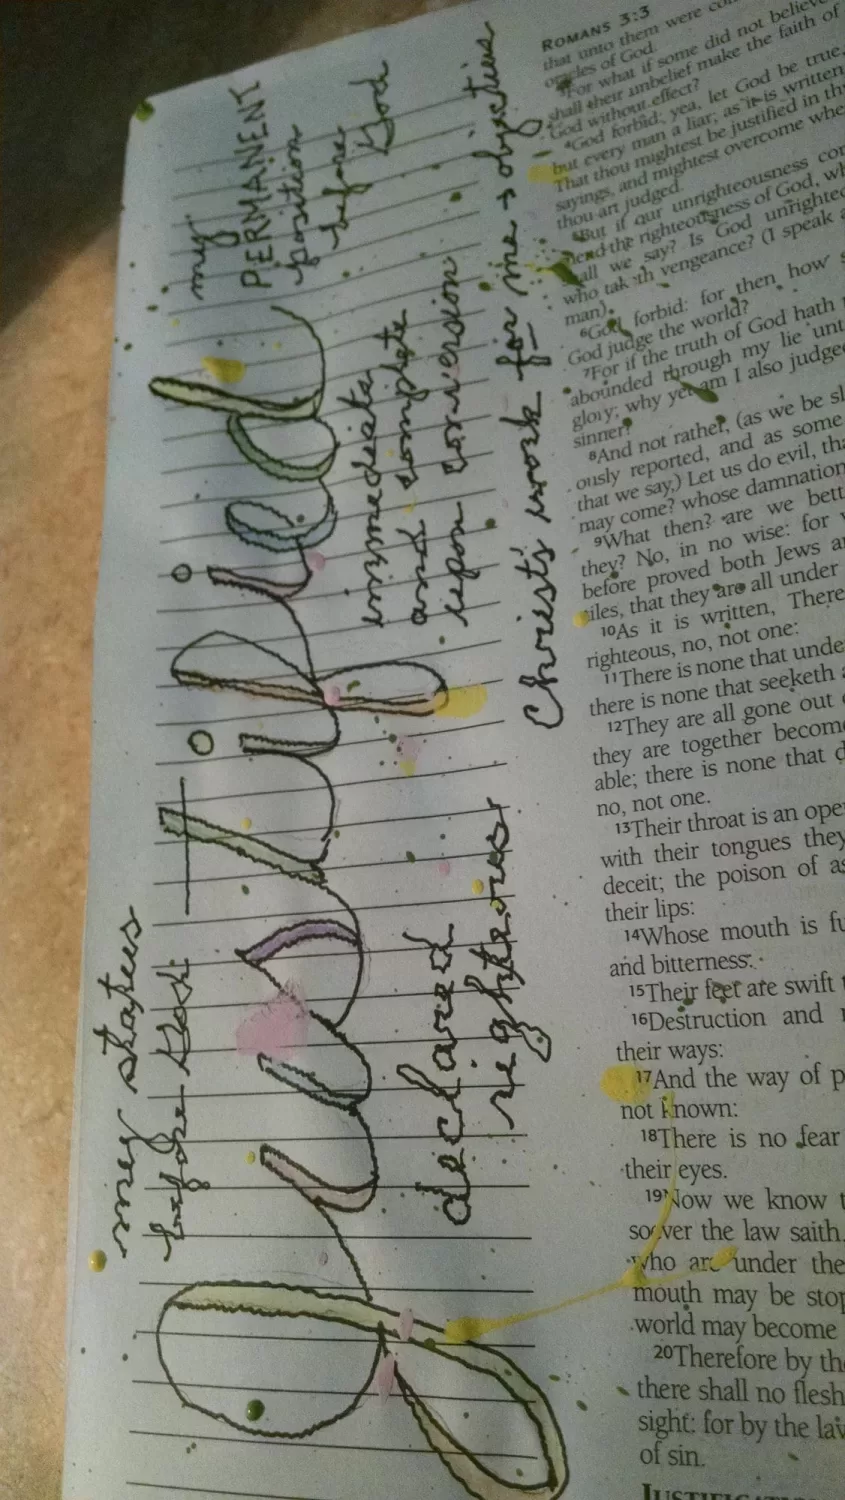 my status
before God
justified
my
PERMANENT
position
before
God
declared
righteous
immediate
and complete
upon conversion
Christ's work for me → objective
ROMANS 3:3
that unto them were
oracles of God.
For what if some did not believe
shall their unbelief make the faith of
God without effect?
4God forbid: yea, let God be true,
but every man a liar; as it is written
That thou mightest be justified in
sayings, and mightest overcome
thou art judged.
5But if our unrighteousness
mend the righteousness of God,
shall we say? Is God
who taketh vengeance? (I speak
man).
6God forbid: for then how
God judge the world?
7For if the truth of God hath
abounded through my lie
glory; why yet am I also judged
sinner?
8And not rather, (as we be
ously reported, and as some
that we say,) Let us do evil,
may come? whose damnation
9What then? are we
they? No, in no wise: for
before proved both Jews
tiles, that they are all under
10As it is written, There
righteous, no, not one:
11There is none that
there is none that seeketh
12They are all gone out
they are together
able; there is none that
no, not one.
13Their throat is an
with their tongues they
deceit; the poison of
their lips:
14Whose mouth is
and bitterness:
15Their feet are swift
16Destruction and
their ways:
17And the way of
not known:
18There is no fear
their eyes.
19Now we know
soever the law saith,
who are under the
mouth may be
world may become
20Therefore by
there shall no flesh
sight: for by the
of sin.